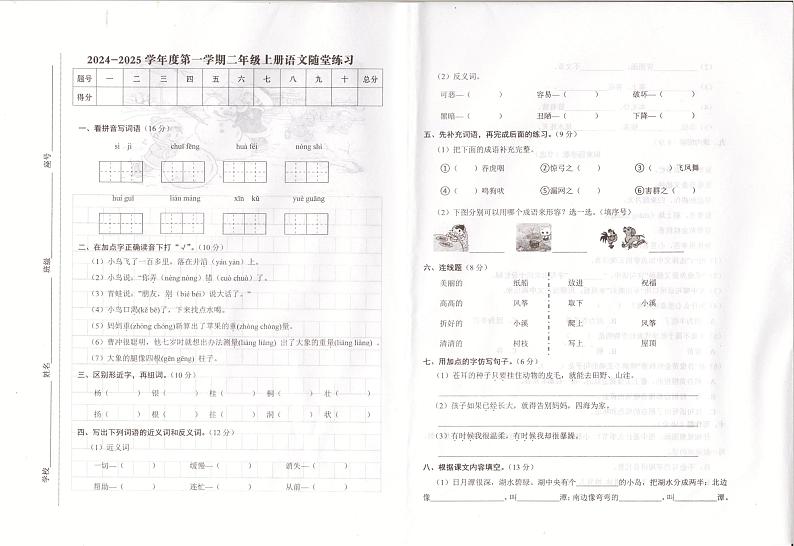 2024-2025 学年度第一学期二年级上册语文随堂练习
题号 一 二 三 四 五 六 七 八 十 总分
得分
一、看拼音写词语(16 分)
sì jì chuī fēng huà fēi nóng shì
huí guī lián máng xīn kǔ yuè guāng
二、在加点字正确读音下打“√”。(10 分)
(1)小鸟飞了一百多里,落在井沿(yán yàn)上。
(2)小鸟说:“你弄(nèng nòng)错(cuò chuò)了。
(3)青蛙说:“朋友,别(bié béi)说大话了。”
(4)小鸟口渴(kě bē)了,下来找点水喝。
(5)妈妈重(zhòng chóng)新算出了苹果的重(zhòng chóng)量。
(6)曹冲很聪明,他七岁时就想出办法测量(liáng liàng) 出了大象的重量(liáng liàng) 。
(7)大象的腿像四根(gēn gēng) 柱子。
三、区别形近字,再组词。(10 分)
杨( ) 银( ) 桂( ) 桐( ) 壮( )
扬( ) 根( ) 挂( ) 洞( ) 状( )
四、写出下列词语的近义词和反义词。(12 分)
(1)近义词
一切—( ) 缓慢—( ) 消失—( )
帮助—( ) 连忙—( ) 从前—( )
学校 姓名 班级 座号
(2)反义词。
可恶—( ) 容易—( ) 破坏—( )
黑暗—( ) 丑陋—( ) 下降—( )
五、先补充词语,再完成后面的练习。(9 分)
(1)把下面的成语补充完整。
①( )吞虎咽 ②惊弓之( ) ③( )飞凤舞
④( )鸣狗吠 ⑤漏网之( ) ⑥害群之( )
(2)下图分别可以用哪个成语来形容?选一选。(填序号)
六、连线题(8 分)
美丽的 纸船 放进 祝福
高高的 风筝 取下 小溪
折好的 小溪 爬上 风筝
清清的 树枝 写上 屋顶
七、用加点的字仿写句子。(6 分)
(1)苍耳的种子只要挂住动物的皮毛,就能去田野、山洼。
(2)孩子如果已经长大,就得告别妈妈,四海为家。
(3)有时候我很温柔,有时候我却很暴躁。
八、根据课文内容填空。(13 分)
(1)日月潭很深,湖水碧绿。湖中央有个 的小岛,把湖水分成两半:北边
像 ,叫 潭;南边像弯弯的 ,叫 潭。